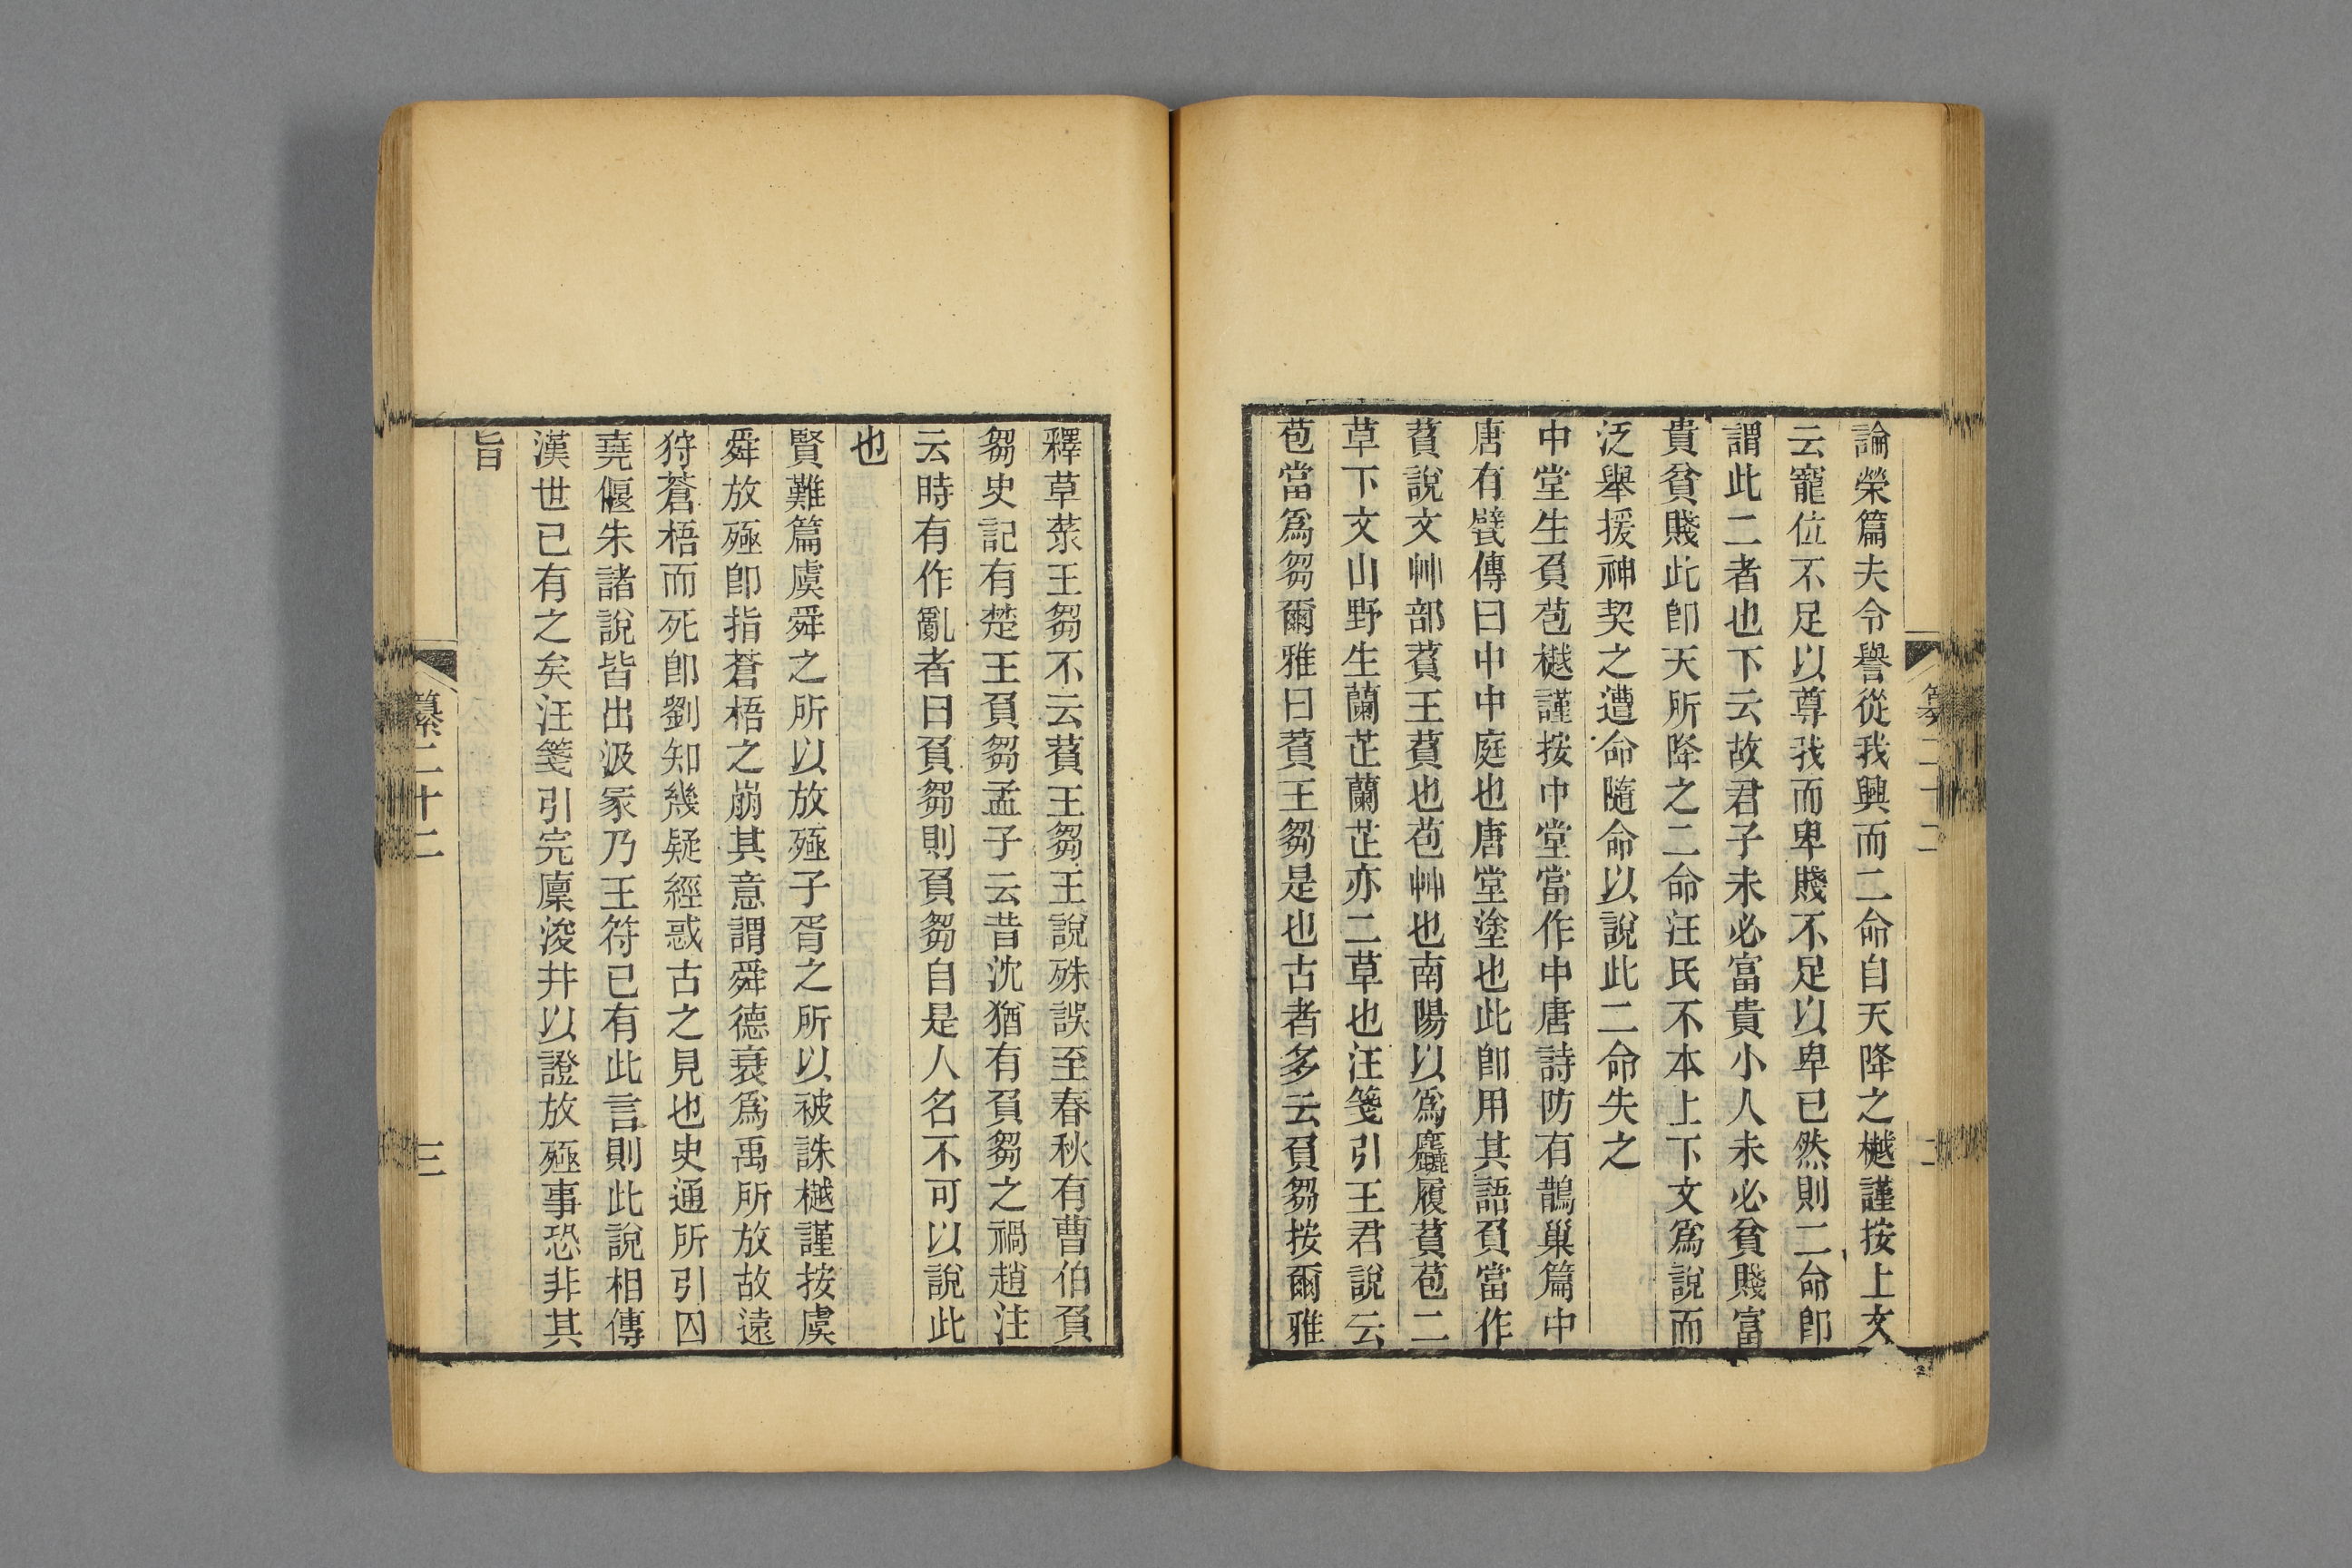 論榮篇夫令譽從我興而二命自天降之樾謹按上文
云寵位不足以尊我而卑賤不足以卑已然則二命卽
謂此二者也下云故君子未必富貴小人未必貧賤富
貴貧賤此卽天所降之二命汪氏不本上下文爲說而
泛舉援神契之遭命隨命以說此二命失之
中堂生負苞樾謹按中堂當作中唐詩防有鵲巢篇中
唐有甓傳曰中中庭也唐堂塗也此卽用其語負當作
萯說文艸部萯王萯也苞艸也南陽以爲麤履萯苞二
草下文山野生蘭芷蘭芷亦二草也汪箋引王君說云
苞當爲芻爾雅曰萯王芻是也古者多云負芻按爾雅
纂二十二
二
釋草菉王芻不云萯王芻王說殊誤至春秋有曹伯負
芻史記有楚王負芻孟子云昔沈猶有負芻之禍趙注
云時有作亂者曰負芻則負芻自是人名不可以說此
也
賢難篇虞舜之所以放殛子胥之所以被誅樾謹按虞
舜放殛卽指蒼梧之崩其意謂舜德衰爲禹所放故遠
狩蒼梧而死卽劉知幾疑經惑古之見也史通所引囚
堯偃朱諸說皆出汲冢乃王符已有此言則此說相傳
漢世已有之矣汪箋引完廩浚井以證放殛事恐非其
旨
纂二十二
三